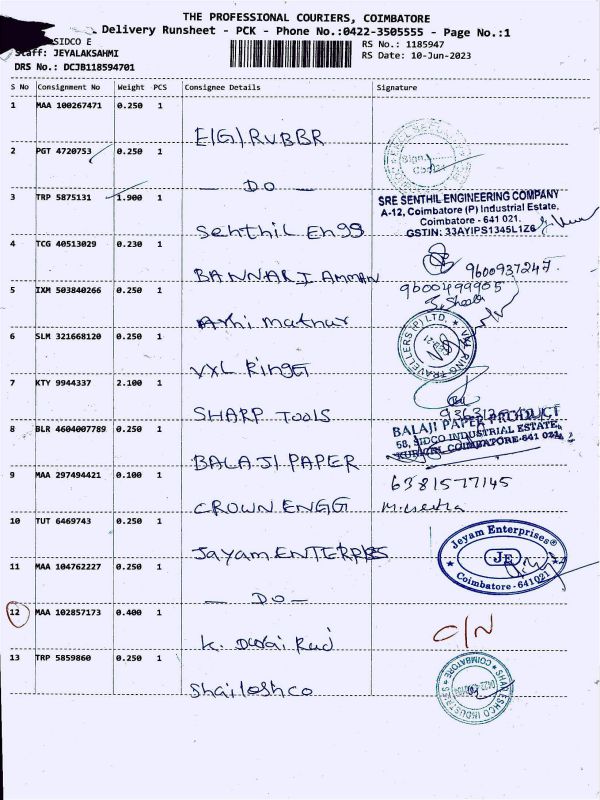 THE PROFESSIONAL COURIERS, COIMBATORE
Delivery Runsheet - PCK - Phone No.:0422-3505555 - Page No.:1
SIDCO E
Staff: JEYALAKSAHMI
DRS No.: DCJB118594701
RS No.: 1185947
RS Date: 10-Jun-2023
S No Consignment No Weight PCS Consignee Details Signature
1 MAA 100267471 0.250 1
E(G) RUBBR
2 PGT 4720753 0.250 1
— DO —
3 TRP 5875131 1.900 1
Senthil Engg
SRE SENTHIL ENGINEERING COMPANY
A-12, Coimbatore (P) Industrial Estate,
Coimbatore - 641 021.
GSTIN: 33AYIPS1345L1Z6
4 TCG 40513029 0.230 1
BANNARI AMMAN
9600937247.
5 IXM 503840266 0.250 1
9600499905
Arhi mathur
6 SLM 321668120 0.250 1
VXL Ringt
VXL RING TRAVELLERS (P) LTD.
7 KTY 9944337 2.100 1
SHARP TOOLS
8 BLR 4604007789 0.250 1
BALAJI PAPER
BALAJI PAPER PRODUCT
58, SIDCO INDUSTRIAL ESTATE,
KURICHI, COIMBATORE-641 021
9 MAA 297494421 0.100 1
CROWN ENGG
6381577145
10 TUT 6469743 0.250 1
Jayam ENTERPRES
Jeyam Enterprises®
JE
Coimbatore - 641021
11 MAA 104762227 0.250 1
— DO —
12 MAA 102857173 0.400 1
K. Durai Raj
C/N
13 TRP 5859860 0.250 1
Shaileshco
SHAILESHCO INDUSTRIES
COIMBATORE